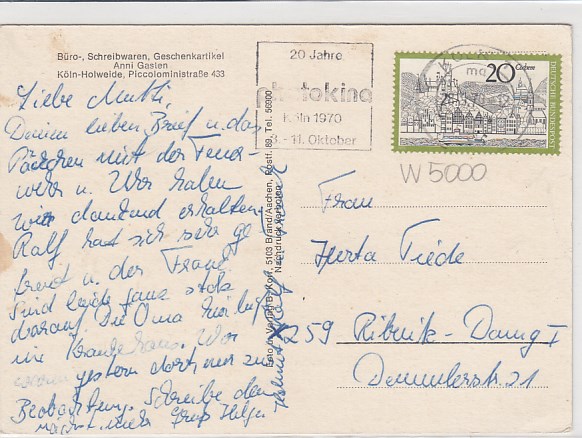 Büro-, Schreibwaren, Geschenkartikel
Anni Gasten
Köln-Holweide, Piccolominístraße 433
Liebe Mutti,
Deinen lieben Brief u. das
Päckchen mit der Feuer-
wehr u. haben
wir dankend erhalten
Ralf hat sich sehr ge
freut u. der Frank
Sind beide ganz stolz
darauf. Die Oma
im Krankenhaus. War
gestern dort nur zur
Beobachtung. Schreibe dem
nächst mehr Gruß Helga
Foto u. Verlag B. Korr, 5103 Brand/Aachen, Postf. 89, Tel. 56900
Nachdruck verboten
20 Jahre
photokina
Köln 1970
- 11. Oktober
20 Cochem
DEUTSCHE BUNDESPOST
W 5000
Frau
Herta Tiede
259 Ribnitz-Damg I
Dammlerstr. 21